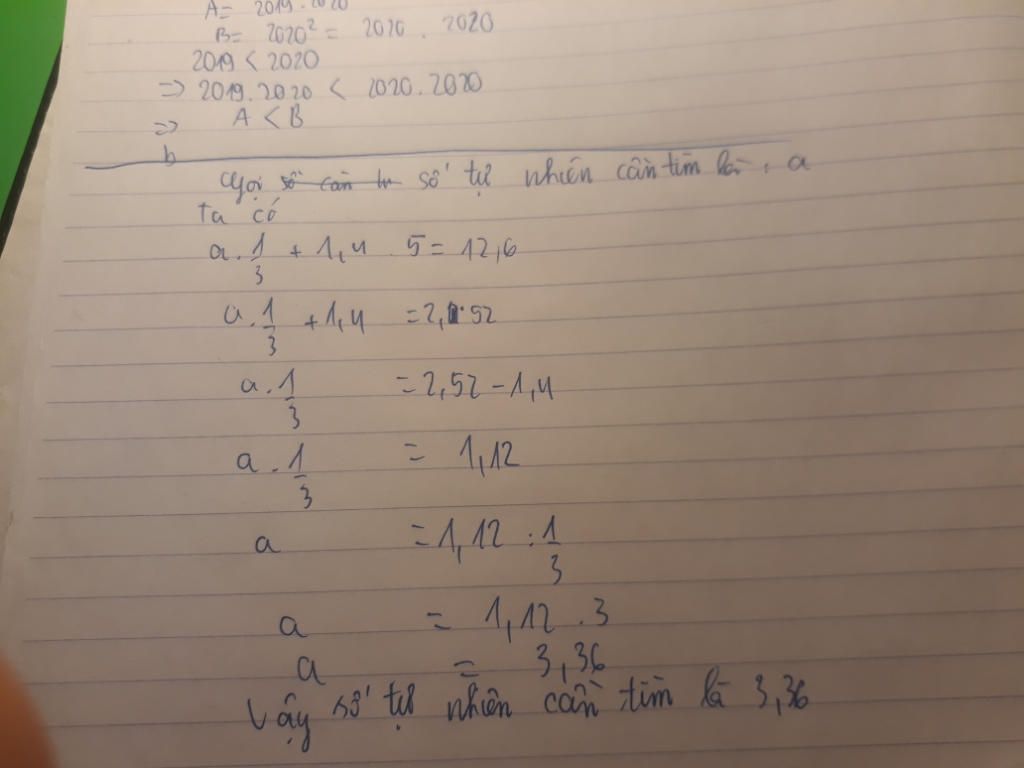 A = 2019.2020
B = 2020² = 2020 . 2020
2019 < 2020
=> 2019.2020 < 2020.2020
=> A < B
b
Gọi số cần số tự nhiên cần tìm là : a
Ta có
a . 1/3 + 1,4 . 5 = 12,6
a . 1/3 + 1,4 = 2,52
a . 1/3 = 2,52 - 1,4
a . 1/3 = 1,12
a = 1,12 : 1/3
a = 1,12 . 3
a = 3,36
Vậy số tự nhiên cần tìm là 3,36